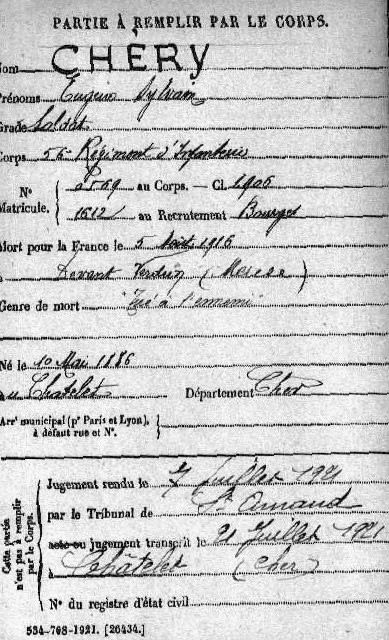 PARTIE À REMPLIR PAR LE CORPS.
Nom CHÉRY
Prénoms Eugène Sylvain
Grade Soldat
Corps 56 Régiment d'Infanterie
N° Matricule. { 0569 au Corps. — Cl. 1906
1612 au Recrutement Bourges
Mort pour la France le 5 Août 1916
à Devant Verdun (Meuse)
Genre de mort "Tué à l'ennemi"
Né le 10 Mai 1886
au Chatelet Département Cher
Arrt municipal (pr Paris et Lyon), à défaut rue et N°.
Cette partie n'est pas à remplir par le Corps.
Jugement rendu le 7 Juillet 1921
par le Tribunal de St Amand
acte ou jugement transcrit le 21 Juillet 1921
à Châtelet (Cher)
N° du registre d'état civil
534-708-1921. [26434.]